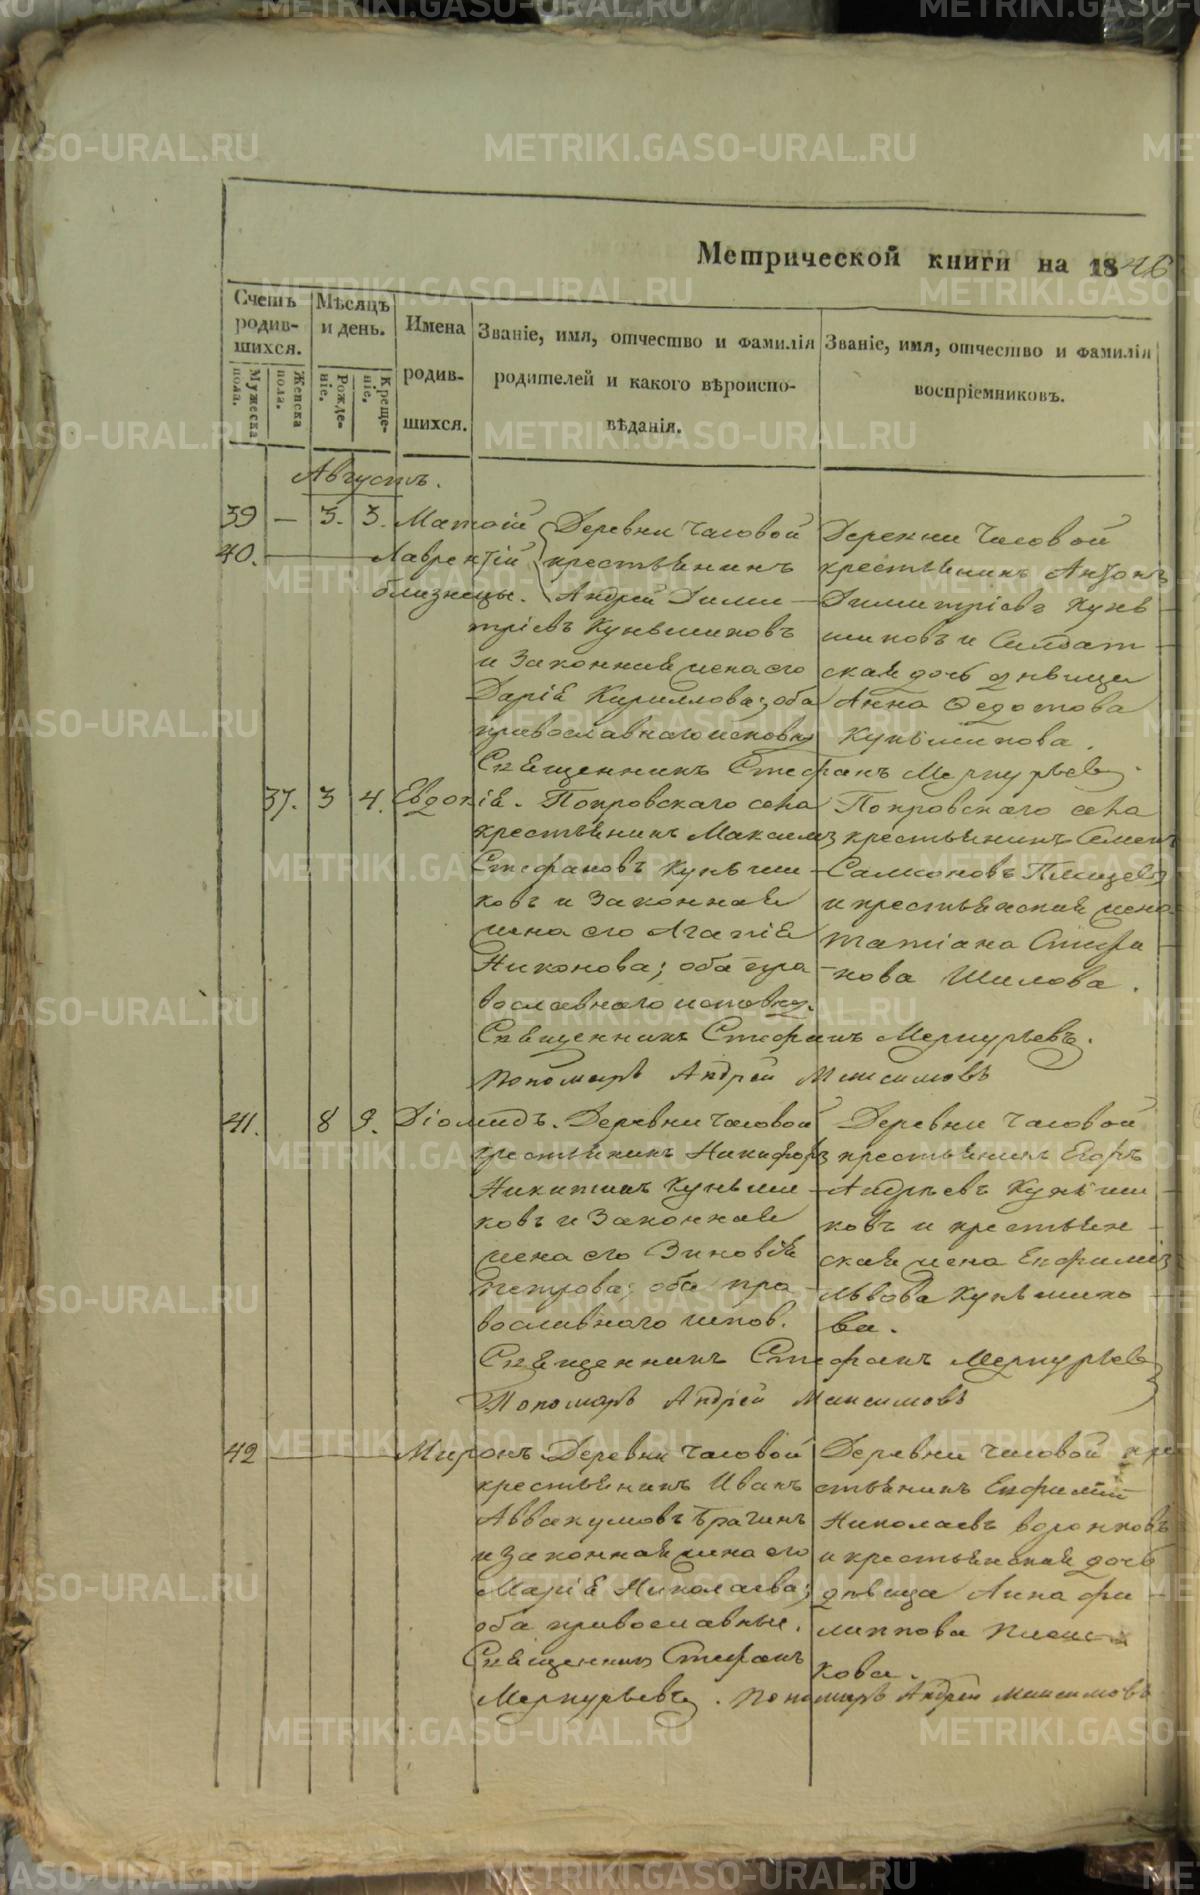 Метрической книги на 1846
Счетъ родившихся.
Мужеска пола.
Женска пола.
Мѣсяцъ и день.
Рожденіе.
Крещеніе.
Имена родившихся.
Званіе, имя, отчество и фамилія родителей и какого вѣроисповѣданія.
Званіе, имя, отчество и фамилія воспріемниковъ.
Августъ.
39 — 3. 3. Матѳій
40. — Лаврентій
близнецы.
Деревни Часовой
крестьянинъ
Андрей Дими-
тріевъ Куньщиковъ
и законная жена его
Дарія Кириллова; оба
православнаго исповѣд
Деревни Часовой
крестьянинъ Антонъ
Димитріевъ Кунь-
щиковъ и Солдат-
ская дочь дѣвица
Анна Ѳедотова
Куньщикова.
Священникъ Стефанъ Меркурьевъ.
37. 3 4. Евдокія.
Покровскаго села
крестьянинъ Максимъ
Стефановъ Куньщи-
ковъ и законная
жена его Агапія
Никонова; оба пра-
вославнаго исповѣд.
Покровскаго села
крестьянинъ Семенъ
Самсоновъ
и крестьянская жена
Татіана Стефа-
нова Шилова.
Священникъ Стефанъ Меркурьевъ.
Пономарь Андрей Максимовъ
41. 8 9. Діомидъ.
Деревни Часовой
крестьянинъ Никифоръ
Никитинъ Куньщи-
ковъ и законная
жена его Зиновія
Петрова; оба пра-
вославнаго испов.
Деревни Часовой
крестьянинъ Егоръ
Андреевъ Куньщи-
ковъ и крестьян-
ская жена Евфимія
Львова Куньщико-
ва.
Священникъ Стефанъ Меркурьевъ
Пономарь Андрей Максимовъ
42 — Миронъ
Деревни Часовой
крестьянинъ Иванъ
Аввакумовъ Брагинъ
и законная жена его
Марія Николаева;
оба православные.
Деревни Часовой кре
стьянинъ Евфимій
Николаевъ Воронковъ
и крестьянская дочь
дѣвица Анна Фи-
липпова
кова.
Священникъ Стефанъ
Меркурьевъ. Пономарь Андрей Максимовъ
METRIKI.GASO-URAL.RU